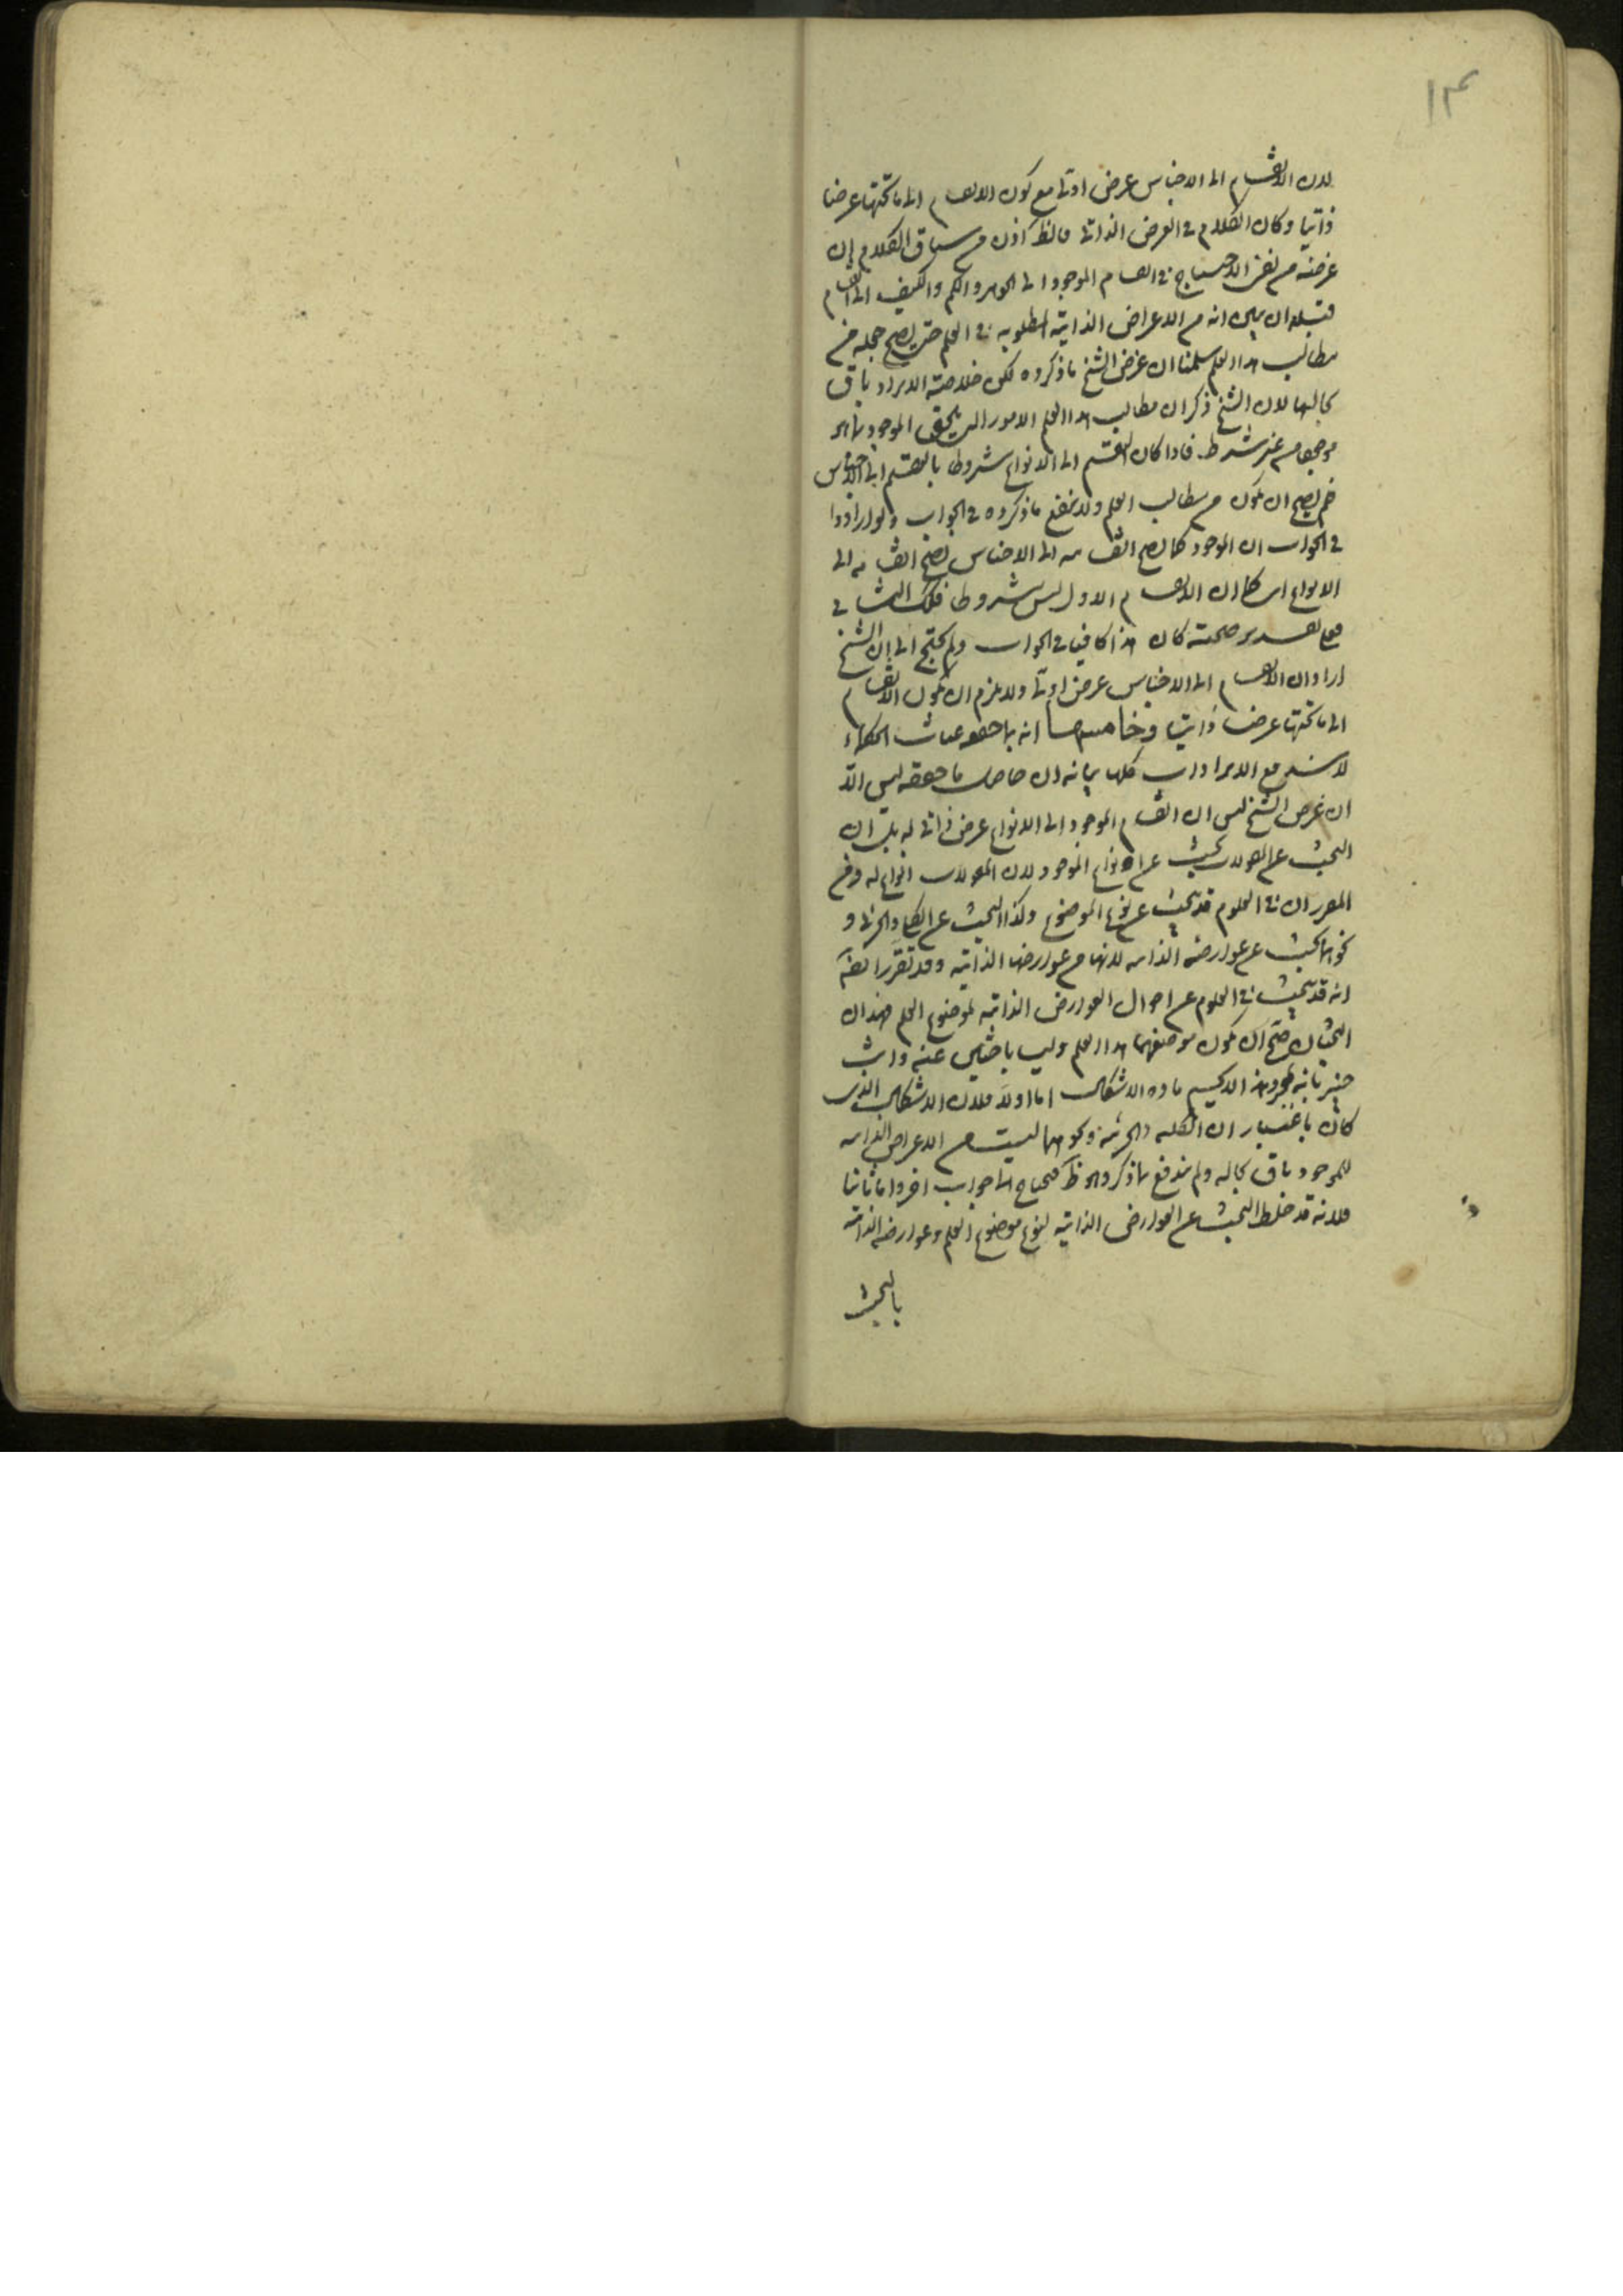 ۱۳
لان الانقسام الى الاجناس عرض اولى مع كون الانقسام الى ما تحتها عرضا
ذاتيا وكان الكلام فى العرض الذاتى فالظ اذن من سياق الكلام ان
غرضه من نفى الاحتياج فى انقسام الموجود الى الجوهر والكم والكيف الى انقسام
قبله ان يبين انه من الاعراض الذاتية المطلوبه فى العلم حتى يصح جعله من
مطالب هذا العلم سلمنا ان غرض الشيخ ما ذكروه لكن خلاصة الايراد باق
بحالها لان الشيخ ذكر ان مطالب هذا العلم الامور التى يلحق الموجود بما هو
موجود من غير شرط فاذا كان التقسيم الى الانواع مشروطا بالتقسيم الى الاجناس
فلم يصح ان يكون من مطالب العلم ولا ينفع ما ذكروه فى الجواب ولو ارادوا
فى الجواب ان الموجود كما يصح انقسامه الى الاجناس يصح انقسامه الى
الانواع اى كما ان الانقسام الاول ليس مشروطا فكذلك الثانى
فعلى تقدير صحته كان هذا كافيا فى الجواب ولم يحتج الى ان الشيخ
اراد ان الانقسام الى الاجناس عرض اولى ولا يلزم ان يكون الانقسام
الى ما تحتها عرضا ذاتيا وخامسها انه بما حققه غياث الحكماء
لا يندفع الايرادات كلها بيانه ان حاصل ما حققه ليس الا
ان غرض الشيخ ليس ان انقسام الموجود الى الانواع عرض ذاتى له بل ان
البحث عن المقولات بحث عن انواع الموجود لان المقولات انواع له ومن
المقرر ان فى العلوم قد يبحث عن نوع الموضوع وكذا البحث عن الكلى والجزئى و
نحوهما بحث عن عوارضه الذاتيه لانهما من عوارضها الذاتيه وقد تقرر ايضا
انه قد يبحث فى العلوم عن احوال العوارض الذاتيه لموضوع العلم فهذان
البحثان يصح ان يكون موضعهما هذا العلم وليسا باجنبيين عنه وانت
خبير بانه بمجرد هذا لا يحسم مادة الاشكال اما اولا فلان الاشكال الذى
كان باعتبار ان الكليه والجزئية ونحوهما ليست من الاعراض الذاتيه
للموجود باق بحاله ولم يندفع بما ذكر وهو ظ فيحتاج الى جواب اخر واما ثانيا
فلانه قد خلط البحث عن العوارض الذاتيه لنوع موضوع العلم وعوارضه الذاتيه
بالبحث